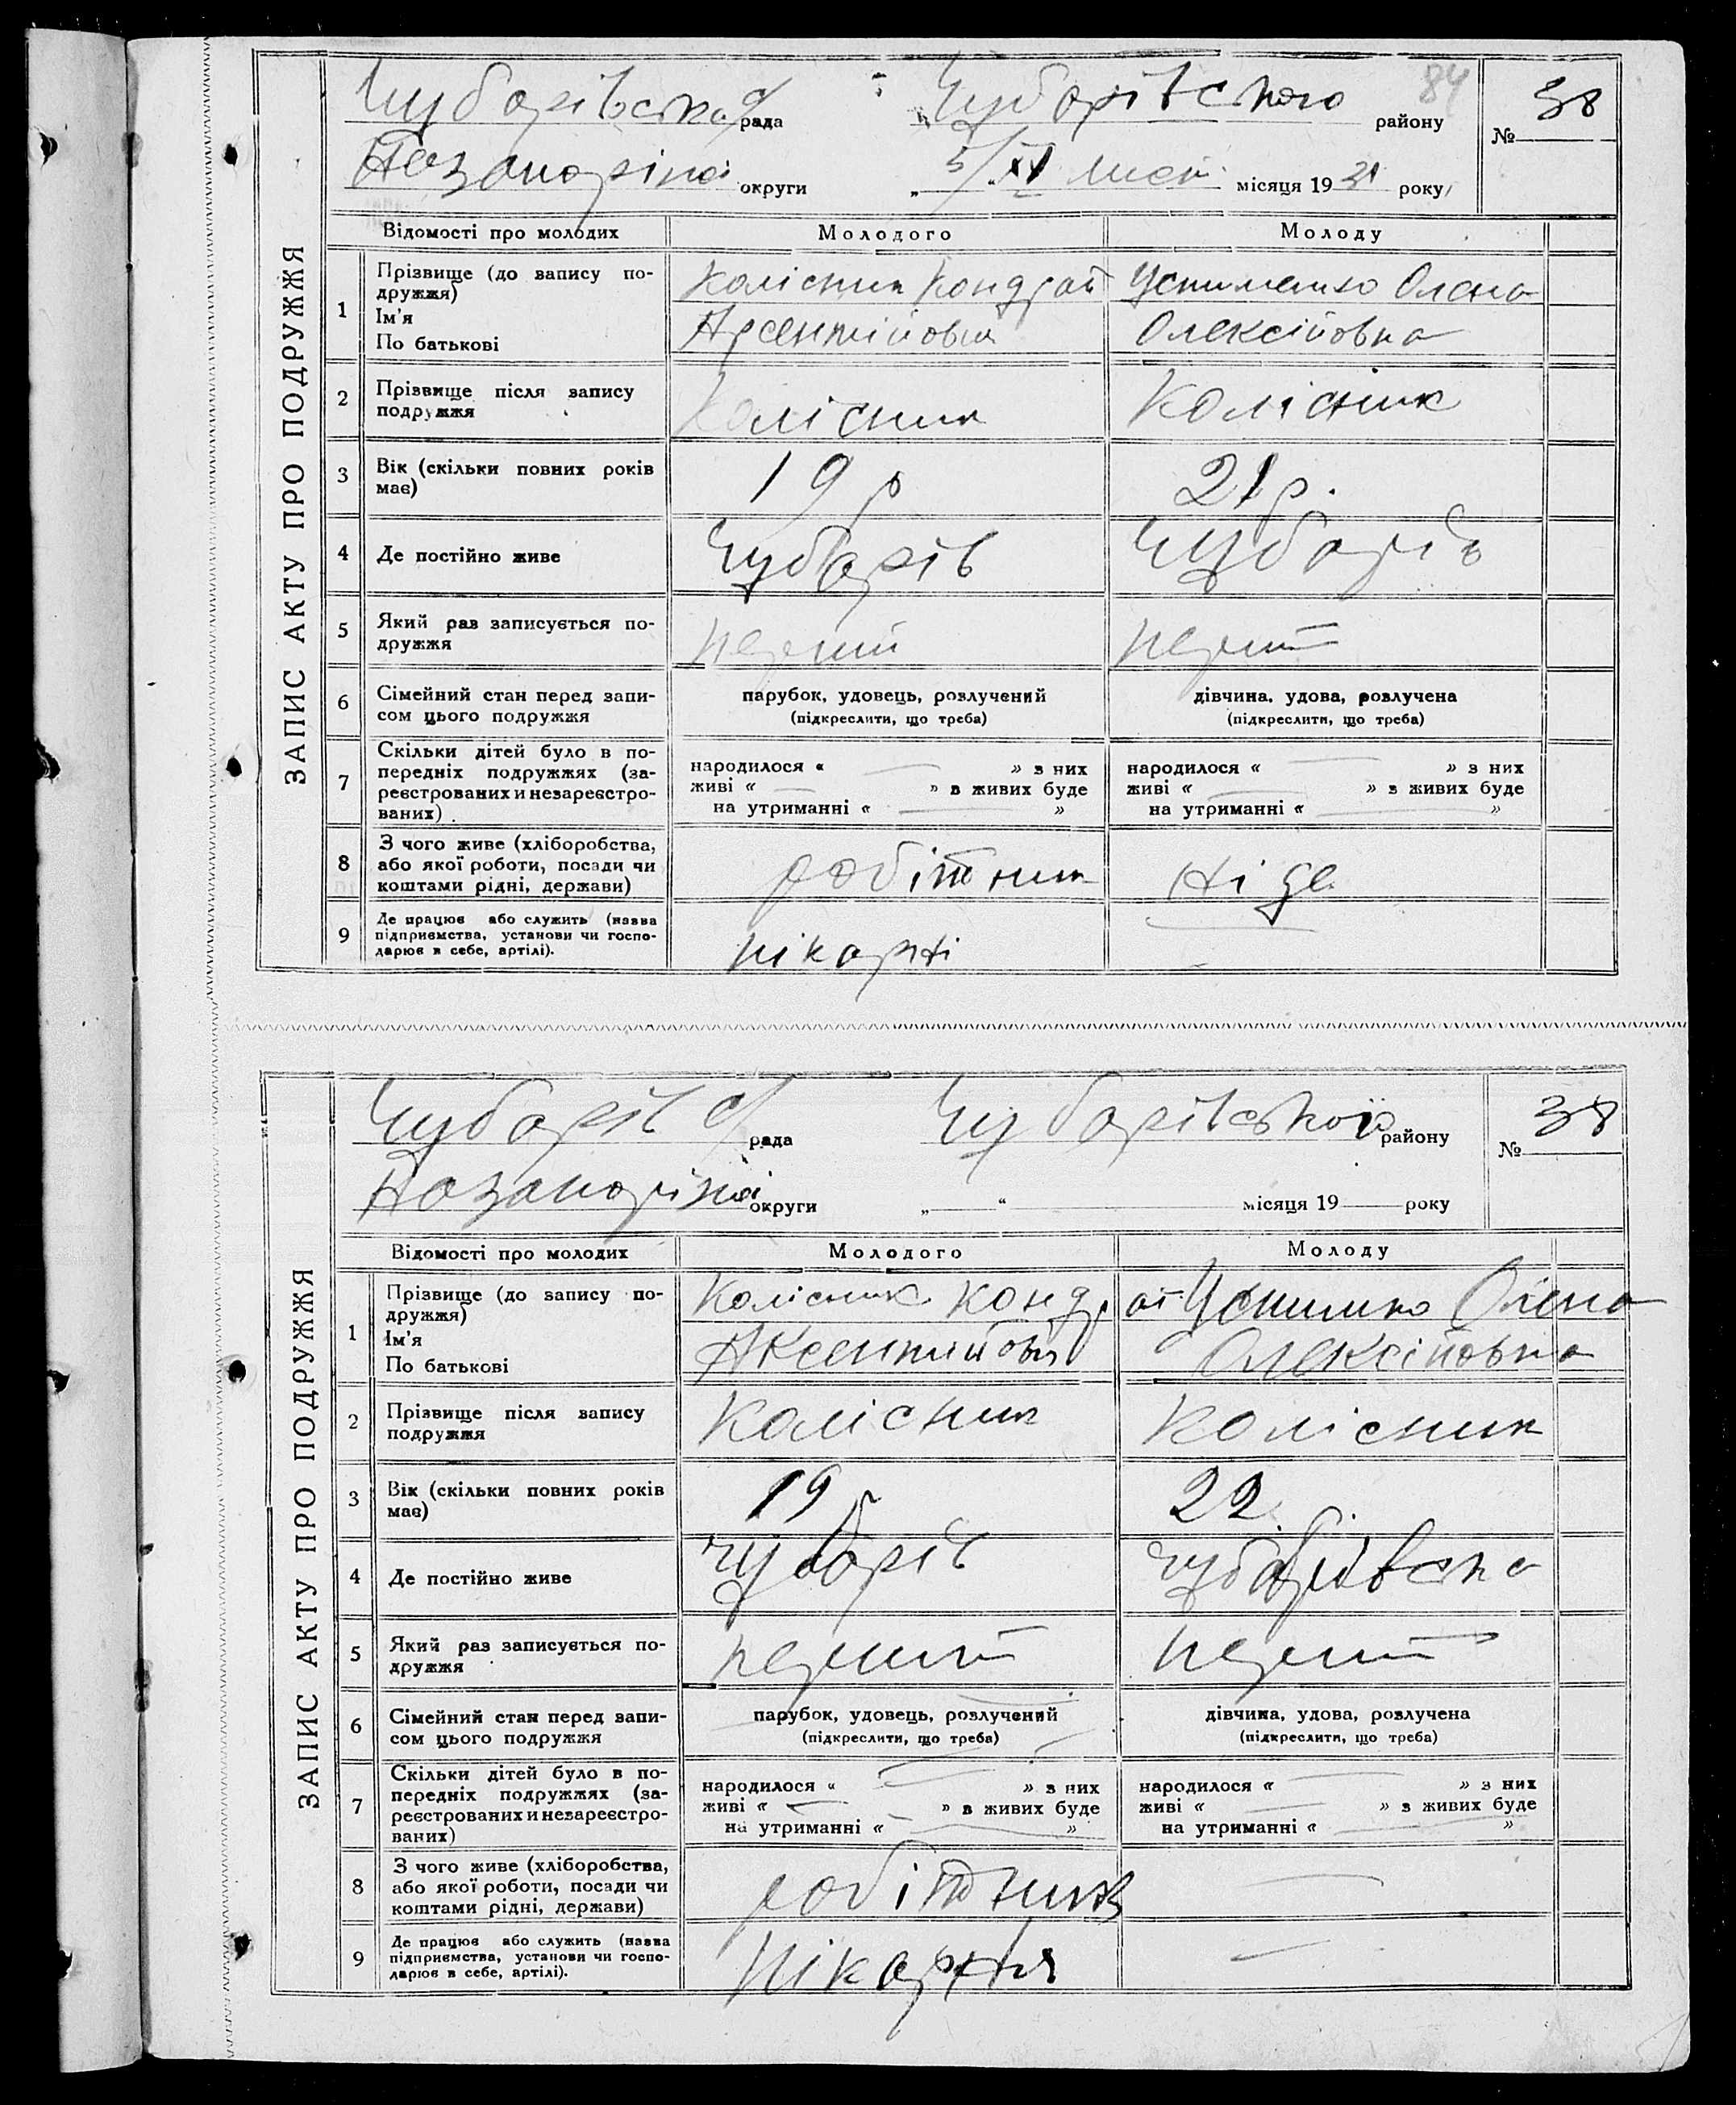 84
ЗАПИС АКТУ ПРО ПОДРУЖЖЯ
Чубарівська с/ рада Чубарівського району № 38
округи 5/XI місяця 1931 року
Відомості про молодих Молодого Молоду
1 Прізвище (до запису подружжя) Ім'я По батькові
Колісник Кондрат Устименко Олена
Арсентийович Олексійовна
2 Прізвище після запису подружжя Колісник Колісник
3 Вік (скільки повних років має) 19 р 21 р.
4 Де постійно живе Чубарів Чубарів
5 Який раз записується подружжя перший перший
6 Сімейний стан перед записом цього подружжя парубок, удовець, розлучений дівчина, удова, розлучена
(підкреслити, що треба) (підкреслити, що треба)
7 Скільки дітей було в попередніх подружжях (зареєстрованих и незареєстрованих)
народилося « — » з них народилося « — » з них
живі « — » з живих буде живі « — » з живих буде
на утриманні « — » на утриманні « — »
8 З чого живе (хліборобства, або якої роботи, посади чи коштами рідні, держави) робітник Ні де
9 Де працює або служить (назва підприємства, установи чи господарює в себе, артілі). пікарні —
ЗАПИС АКТУ ПРО ПОДРУЖЖЯ
Чубарів с/ рада Чубарівської району № 38
округи „ “ місяця 19 року
Відомості про молодих Молодого Молоду
1 Прізвище (до запису подружжя) Ім'я По батькові
Колісник Кондрат Олена
Аксентийович Олексійовна
2 Прізвище після запису подружжя Колісник Колісник
3 Вік (скільки повних років має) 19 р 22.
4 Де постійно живе Чубарів Чубарівска
5 Який раз записується подружжя перший перший
6 Сімейний стан перед записом цього подружжя парубок, удовець, розлучений дівчина, удова, розлучена
(підкреслити, що треба) (підкреслити, що треба)
7 Скільки дітей було в попередніх подружжях (зареєстрованих и незареєстрованих)
народилося « — » з них народилося « — » з них
живі « — » з живих буде живі « — » з живих буде
на утриманні « — » на утриманні « — »
8 З чого живе (хліборобства, або якої роботи, посади чи коштами рідні, держави) робітник —
9 Де працює або служить (назва підприємства, установи чи господарює в себе, артілі). пікарня —